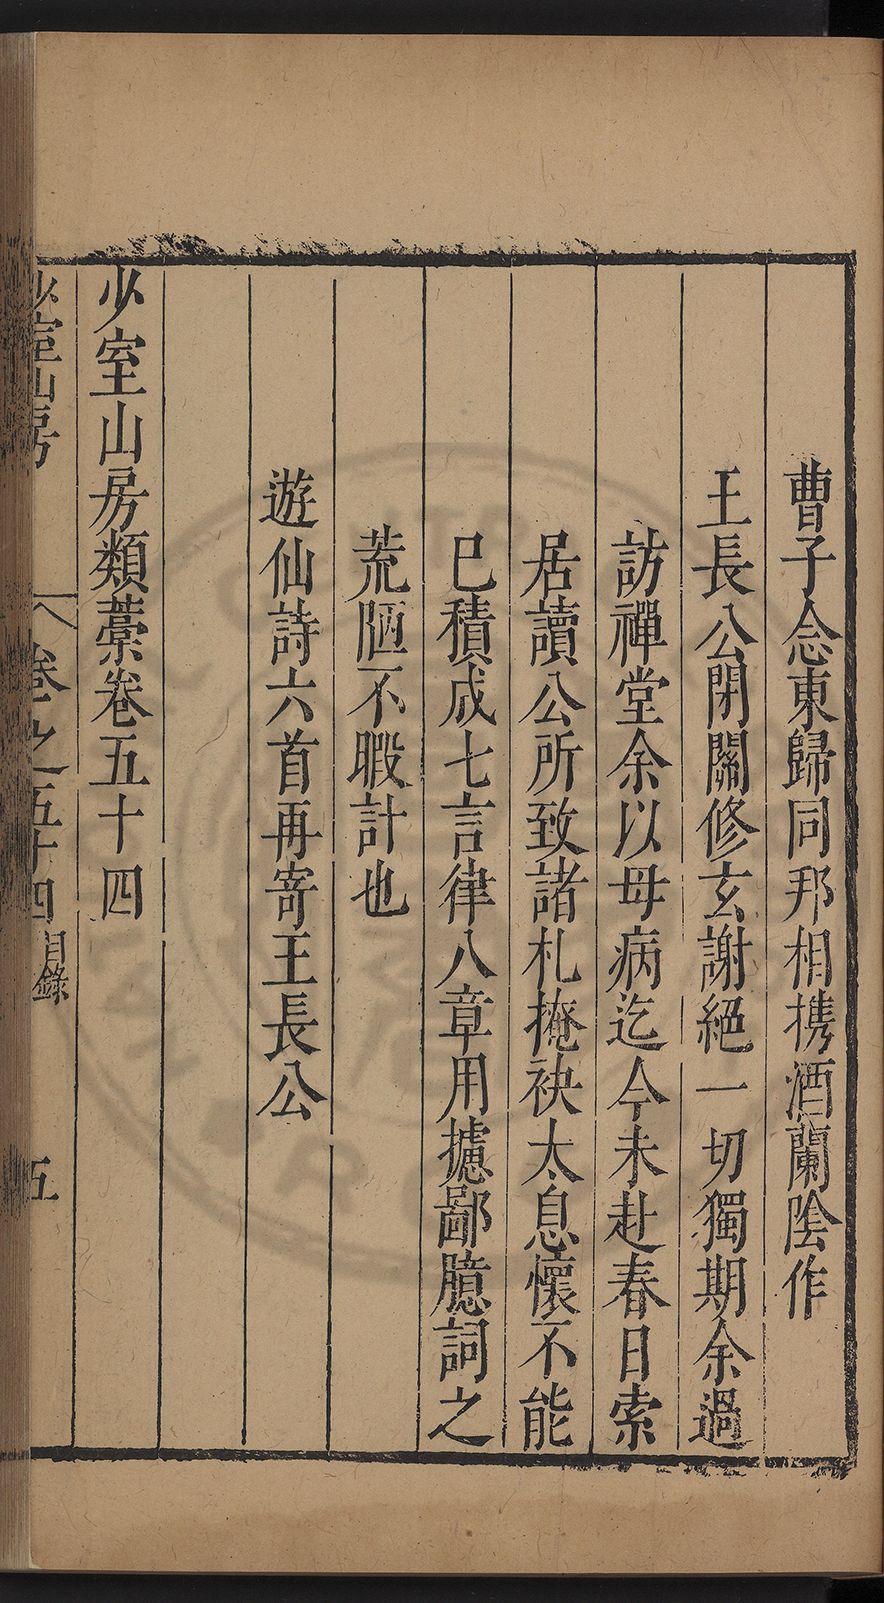 曹子念東歸同邦相携酒蘭陰作
王長公閉關修玄謝絕一切獨期余過
訪禪堂余以母病迄今未赴春日索
居讀公所致諸札掩袂太息懷不能
已積成七言律八章用攄鄙臆詞之
荒陋不暇計也
遊仙詩六首再寄王長公
少室山房類藳卷五十四
少室山房 卷之五十四 目錄 五